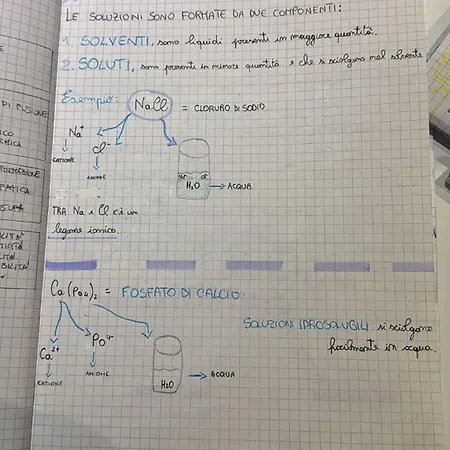 LE SOLUZIONI SONO FORMATE DA DUE COMPONENTI:
1. SOLVENTI, sono liquidi presenti in maggiore quantità.
2. SOLUTI, sono presenti in minore quantità e che si sciolgono nel solvente
Esempio: NaCl = CLORURO DI SODIO
Na+ Cl-
CATIONE ANIONE
Na+ Cl-
H2O → ACQUA
TRA Na e Cl c'è un
legame ionico.
Ca(PO4)2 = FOSFATO DI CALCIO
SOLUZIONI IDROSOLUBILI si sciolgono
facilmente in acqua.
Ca2+ PO4-
CATIONE ANIONE
H2O → ACQUA
DI FUSIONE